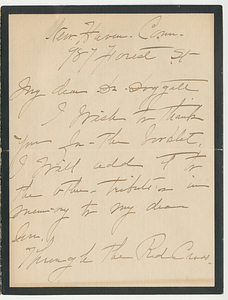 New Haven. Conn.
987 Forest St
My dear Dr. Doggett
I Wish to thank
You for the booklet.
I Will add it to
the other tributes in
memory to my dear
Son.
Through the Red Cross.